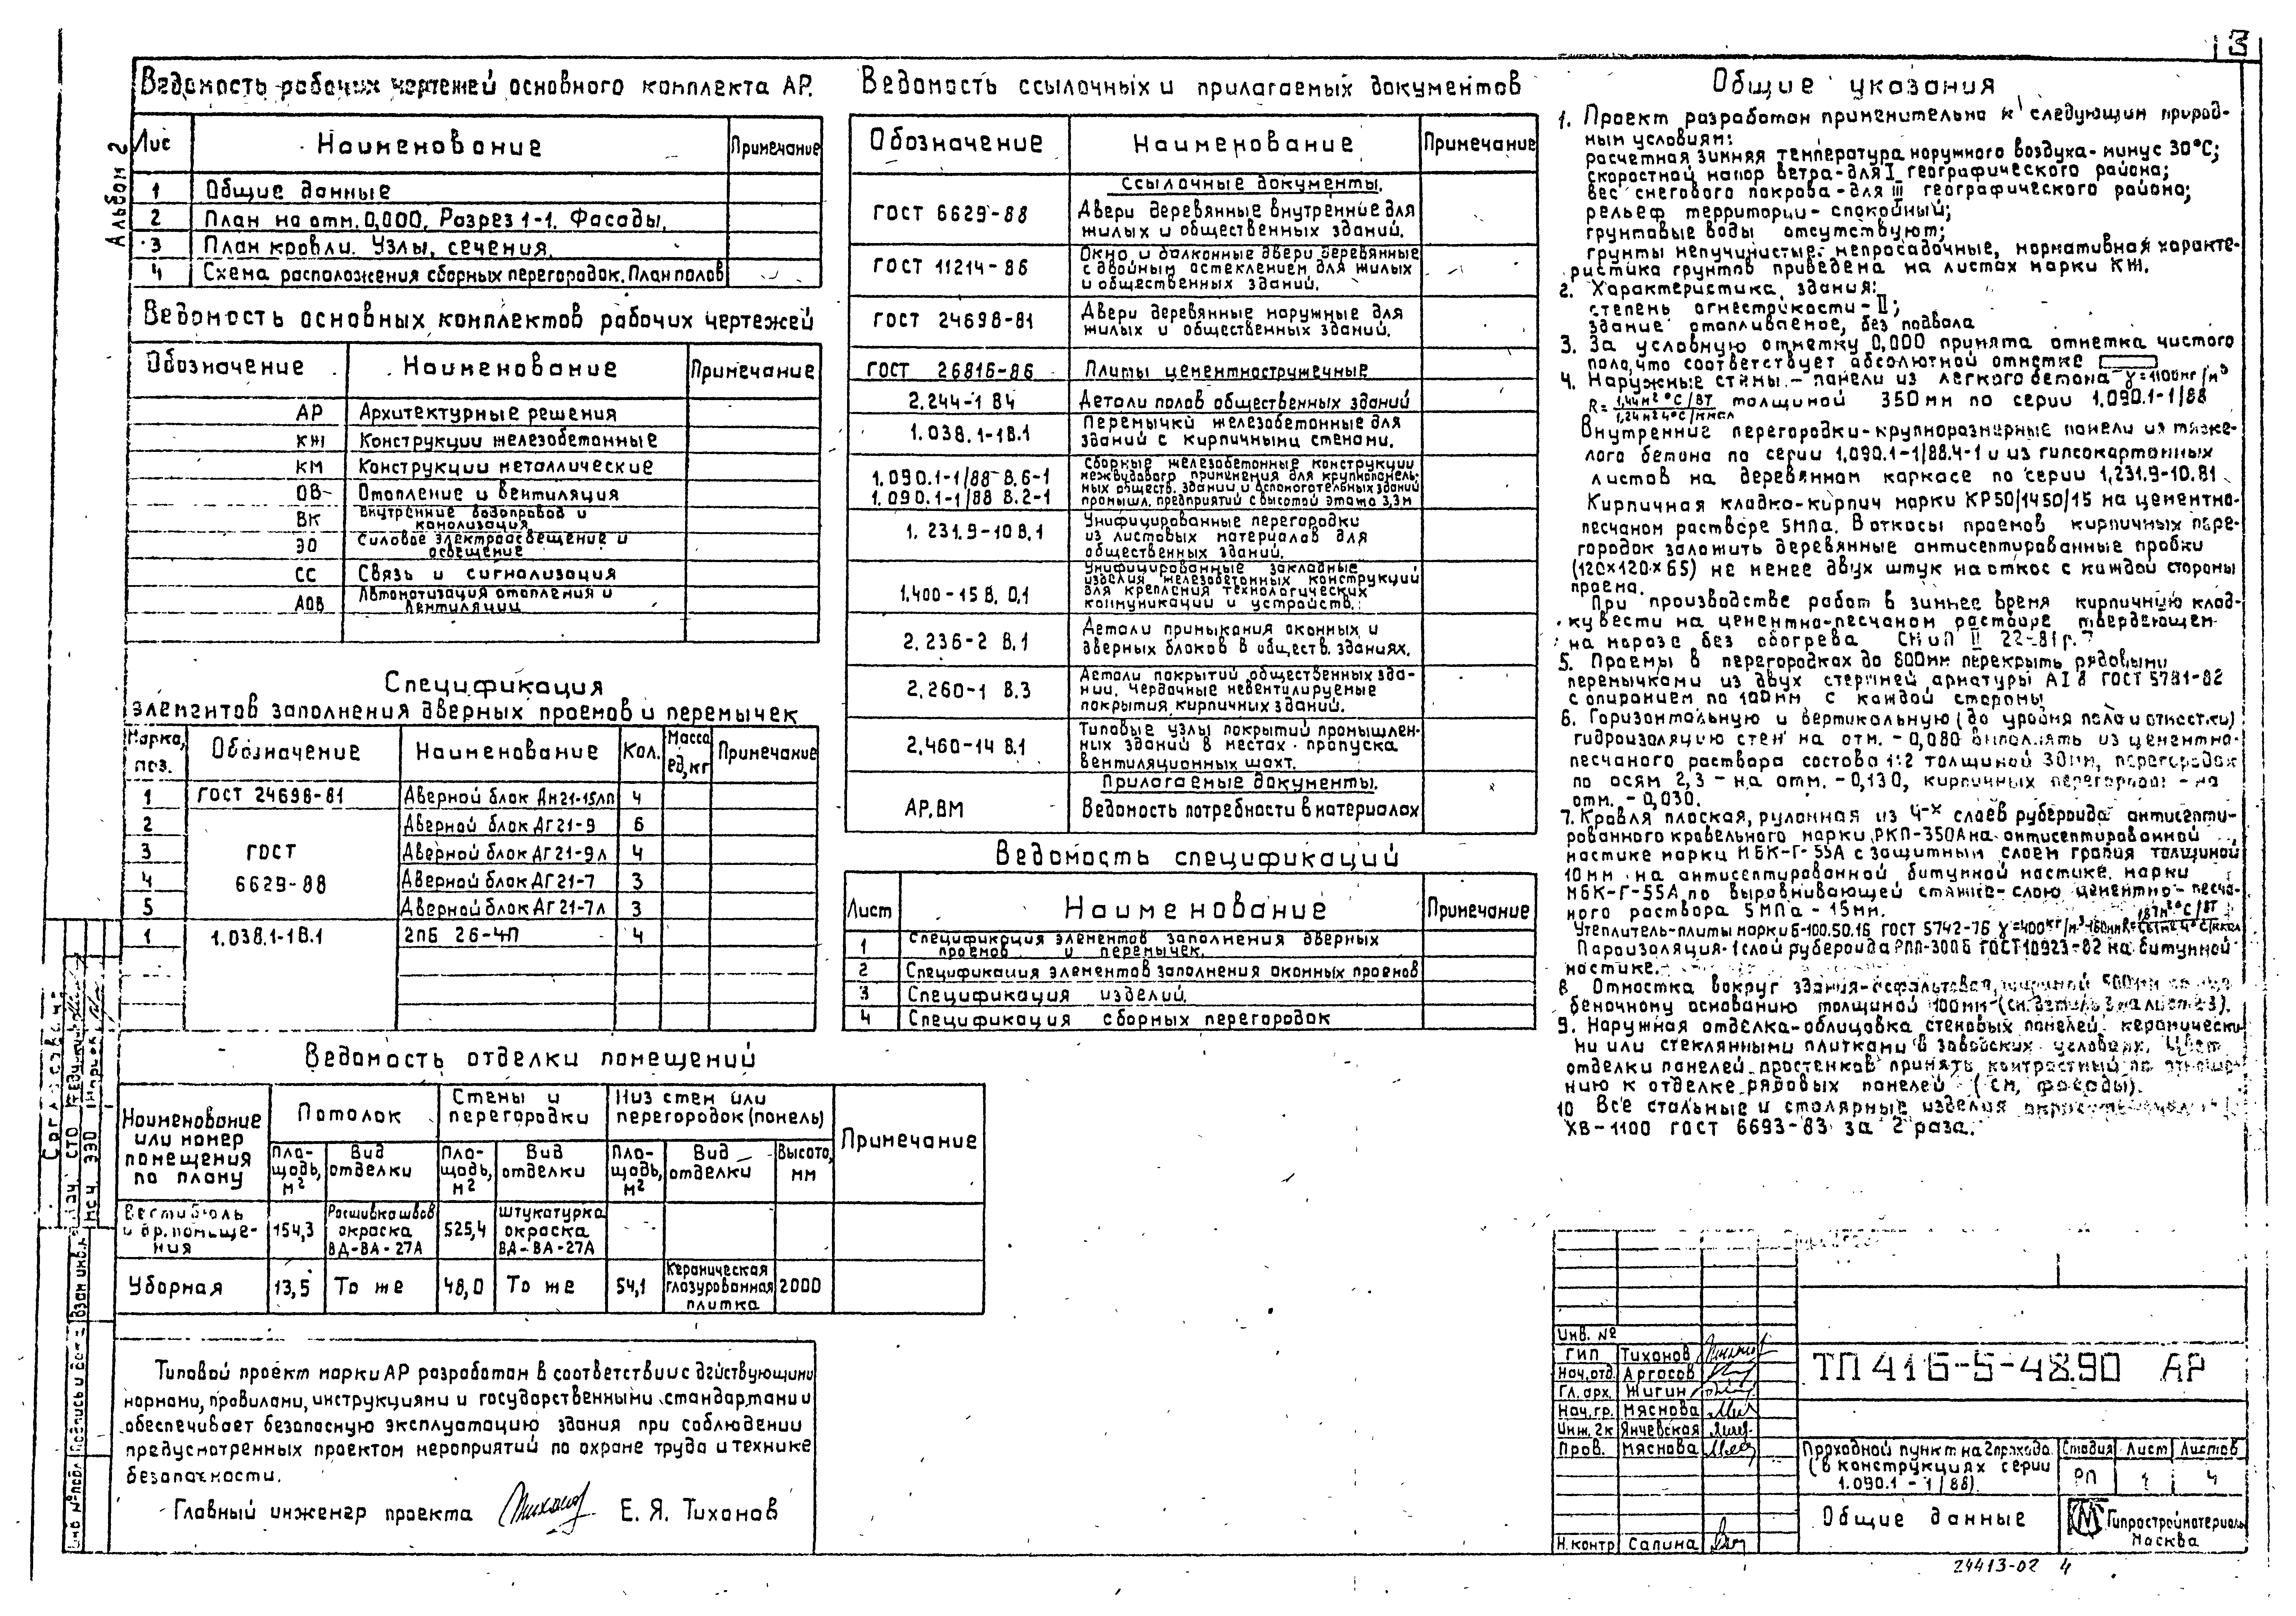 3
Альбом 2
Ведомость рабочих чертежей основного комплекта АР.
Лис Наименование Примечание
1 Общие данные
2 План на отм. 0,000. Разрез 1-1. Фасады.
3 План кровли. Узлы, сечения.
4 Схема расположения сборных перегородок. План полов
Ведомость основных комплектов рабочих чертежей
Обозначение Наименование Примечание
АР Архитектурные решения
КЖ Конструкции железобетонные
КМ Конструкции металлические
ОВ Отопление и вентиляция
ВК Внутренние водопровод и
канализация
ЭО Силовое электроосвещение и
освещение
СС Связь и сигнализация
АОВ Автоматизация отопления и
вентиляции
Спецификация
элементов заполнения дверных проемов и перемычек
Марка, поз. Обозначение Наименование Кол. Масса ед, кг Примечание
1 ГОСТ 24698-81 Дверной блок Дн21-15лп 4
2 Дверной блок ДГ21-9 6
3 ГОСТ Дверной блок ДГ21-9л 4
4 6629-88 Дверной блок ДГ21-7 3
5 Дверной блок ДГ21-7л 3
1 1.038.1-1В.1 2ПБ 26-4П 4
Ведомость отделки помещений
Наименование или номер помещения по плану
Потолок
Стены и перегородки
Низ стен или перегородок (панель)
Примечание
Площадь, м² Вид отделки Площадь, м² Вид отделки Площадь, м² Вид отделки Высота, мм
Вестибюль и др. помещения 154,3 Расшивка швов окраска ВД-ВА-27А 525,4 штукатурка окраска ВА-ВА-27А
Уборная 13,5 То же 48,0 То же 54,1 Керамическая глазурованная плитка 2000
Типовой проект марки АР разработан в соответствии с действующими
нормами, правилами, инструкциями и государственными стандартами и
обеспечивает безопасную эксплуатацию здания при соблюдении
предусмотренных проектом мероприятий по охране труда и технике
безопасности.
Главный инженер проекта Е. Я. Тихонов
Ведомость ссылочных и прилагаемых документов
Обозначение Наименование Примечание
Ссылочные документы.
ГОСТ 6629-88 Двери деревянные внутренние для
жилых и общественных зданий.
ГОСТ 11214-86 Окна и балконные двери деревянные
с двойным остеклением для жилых
и общественных зданий.
ГОСТ 24698-81 Двери деревянные наружные для
жилых и общественных зданий.
ГОСТ 26816-86 Плиты цементностружечные
2.244-1 В4 Детали полов общественных зданий
1.038.1-1В.1 Перемычки железобетонные для
зданий с кирпичными стенами.
1.090.1-1/88 В.6-1
1.090.1-1/88 В.2-1
Сборные железобетонные конструкции
межвидового применения для крупнопанель-
ных обществ. зданий и вспомогательных зданий
промышл. предприятий с высотой этажа 3,3м
1.231.9-10В.1 Унифицированные перегородки
из листовых материалов для
общественных зданий.
1.400-15 В. 0,1 Унифицированные закладные
изделия железобетонных конструкций
для крепления технологических
коммуникации и устройств.
2.236-2 В.1 Детали примыкания оконных и
дверных блоков в обществ. зданиях.
2.260-1 В.3 Детали покрытий общественных зда-
ний. Чердачные невентилируемые
покрытия кирпичных зданий.
2.460-14 В.1 Типовые узлы покрытий промышлен-
ных зданий в местах пропуска
вентиляционных шахт.
Прилагаемые документы.
АР.ВМ Ведомость потребности в материалах
Ведомость спецификаций
Лист Наименование Примечание
1 Спецификация элементов заполнения дверных
проемов и перемычек.
2 Спецификация элементов заполнения оконных проемов
3 Спецификация изделий.
4 Спецификация сборных перегородок
Общие указания
1. Проект разработан применительно к следующим природ-
ным условиям:
расчетная зимняя температура наружного воздуха - минус 30°С;
скоростной напор ветра - для I географического района;
вес снегового покрова - для III географического района;
рельеф территории - спокойный;
грунтовые воды отсутствуют;
грунты непучинистые, непросадочные, нормативная характе-
ристика грунтов приведена на листах марки КЖ.
2. Характеристика здания:
степень огнестойкости - II;
здание отапливаемое, без подвала
3. За условную отметку 0,000 принята отметка чистого
пола, что соответствует абсолютной отметке
4. Наружные стены - панели из легкого бетона γ=1100кг/м³
R= 1,44м²°С/ВТ толщиной 350мм по серии 1.090.1-1/88
Внутренние перегородки - крупноразмерные панели из тяже-
лого бетона по серии 1.090.1-1/88.4-1 и из гипсокартонных
листов на деревянном каркасе по серии 1.231.9-10.В1
Кирпичная кладка - кирпич марки КР50/1450/15 на цементно-
песчаном растворе 5МПа. В откосы проемов кирпичных пере-
городок заложить деревянные антисептированные пробки
(120×120×65) не менее двух штук на откос с каждой стороны
проема.
При производстве работ в зимнее время кирпичную клад-
ку вести на цементно-песчаном растворе твердеющем
на морозе без обогрева СНиП II 22-81 г.7
5. Проемы в перегородках до 800мм перекрыть рядовыми
перемычками из двух стержней арматуры АI 8 ГОСТ 5781-82
с опиранием по 100мм с каждой стороны
6. Горизонтальную и вертикальную (до уровня пола и отмостки)
гидроизоляцию стен на отм. -0,080 выполнять из цементно-
песчаного раствора состава 1:2 толщиной 30мм, перегородок
по осям 2,3 - на отм. -0,130, кирпичных перегородок - на
отм. -0,030.
7. Кровля плоская, рулонная из 4-х слоев рубероида антисепти-
рованного кровельного марки РКП-350А на антисептированной
мастике марки МБК-Г-55А с защитным слоем гравия толщиной
10мм на антисептированной битумной мастике марки
МБК-Г-55А по выравнивающей стяжке - слою цементно-песча-
ного раствора 5МПа - 15мм.
Утеплитель - плиты марки Б-100.50.16 ГОСТ 5742-76 γ=400кг/м³
Пароизоляция - 1 слой рубероида РПП-300Б ГОСТ 10923-82 на битумной
мастике.
8 Отмостка вокруг здания - асфальтовая, шириной 500мм
беночному основанию толщиной 100мм (см. деталь 3 на листе 3).
9. Наружная отделка - облицовка стеновых панелей керамически-
ми или стеклянными плитками в заводских условиях. Цвет
отделки панелей простенков принять контрастный по отноше-
нию к отделке рядовых панелей (см. фасады).
10 Все стальные и столярные изделия
ХВ-1100 ГОСТ 6693-83 за 2 раза.
Инв. №
ГИП Тихонов
Нач.отд. Аргасов
Гл. арх. Жигин
Нач.гр. Мяснова
Инж. 2к Янчевская
Пров. Мяснова
Н.контр Сапина
ТП 416-5-48.90 АР
Проходной пункт на 2 прохода
(в конструкциях серии
1.090.1-1/88)
Стадия Лист Листов
РП 1 4
Общие данные
Гипростройматериалы
Москва
24413-02 4
Согласовано
Нач. СТО
Нач. ЭЭО
Взам инв.№
Подпись и дата
Инв № подл